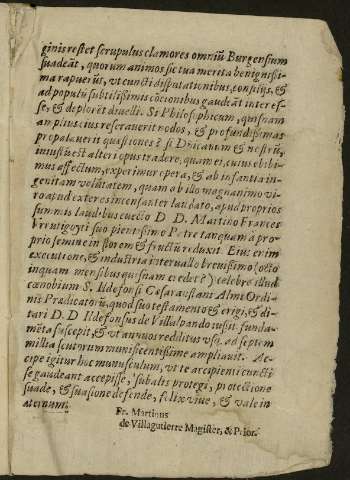 ginis restet scrupulus clamores omniũ Burgensium
suadeãt, quorum animos sic tua merita benignissi-
ma rapuerũt, vt cuncti disputationibus, consilijs, &
ad populũ subtilissimis cõcionibus gaudeãt interes-
se, & deplorẽt divelli. Si Philosophicum, quisnam
amplius eius reseraverit nodos, & profundissimas
propalaverit quæstiones? si Divinum & nostrũ,
iniustũ est alteri opus tradere, quam ei, cuius ebibi-
mus affectum, experimur opera, & ab infantia in-
genitam volũtatem, quam ab illo magnanimo vi-
ro apud exteros incensanter laudato, apud proprios
summis laudibus euecto D. D. Martino Frances
Vrrutigoyti suo pientissimo Patre tanquam à pro-
prio semine in florem & fructũ reduxit. Eius enim
executione, & industria intervallo brevissimo (octo
inquam mensibus quisnam credet?) celebre illud
cœnobium S. Ildefonsi Cæsaraustani Almi Ordi-
nis Prædicatorũ, quod suo testamento & erigi, & di-
tari D. D Ildefonsus de Villalpando iussit. funda-
mẽta suscepit, & vt annuos redditus vsq. ad septem
millia scutorum munificentissime ampliauit. Ac-
cipe igitur hoc munusculum, vt te accipienti cuncti
se gaudeant accepisse, sub alis protegi, protectione
suade, & suasione defende, fœlix vive, & vale in
æternum.
Fr. Martinus
de Villagutierre Magister, & Prior.